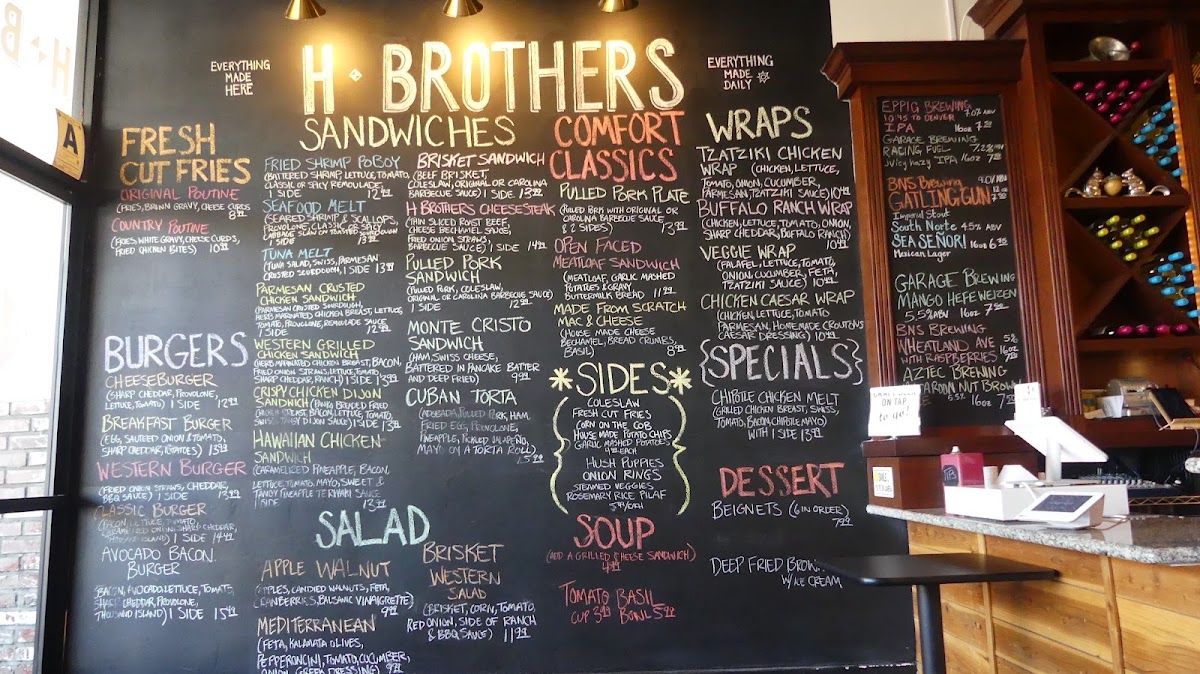 EVERYTHING
MADE
HERE
H · BROTHERS
EVERYTHING
MADE
DAILY
A
FRESH
CUT FRIES
ORIGINAL POUTINE
(FRIES, BROWN GRAVY, CHEESE CURDS)
8.99
COUNTRY POUTINE
(FRIES, WHITE GRAVY, CHEESE CURDS,
FRIED CHICKEN BITES) 10.99
BURGERS
CHEESEBURGER
(SHARP CHEDDAR, PROVOLONE,
LETTUCE, TOMATO) 1 SIDE 12.99
BREAKFAST BURGER
(EGG, SAUTEED ONION & TOMATO,
SHARP CHEDDAR, POTATOES) 13.99
WESTERN BURGER
(FRIED ONION STRAWS, CHEDDAR,
BBQ SAUCE) 1 SIDE 13.99
CLASSIC BURGER
(BACON, LETTUCE, TOMATO,
SHARP CHEDDAR,
THOUSAND ISLAND) 1 SIDE 14.99
AVOCADO BACON
BURGER
(BACON, AVOCADO, LETTUCE, TOMATO,
SHARP CHEDDAR, PROVOLONE,
THOUSAND ISLAND) 1 SIDE 15.99
SANDWICHES
FRIED SHRIMP PO BOY
(BATTERED SHRIMP, LETTUCE, TOMATO,
CLASSIC OR SPICY REMOULADE)
1 SIDE 12.99
SEAFOOD MELT
(SEARED SHRIMP & SCALLOPS,
PROVOLONE, CLASSIC OR SPICY
CABBAGE SLAW ON TOASTED SOURDOUGH)
1 SIDE 13.99
TUNA MELT
(TUNA SALAD, SWISS, PARMESAN
CRUSTED SOURDOUGH) 1 SIDE 13.99
PARMESAN CRUSTED
CHICKEN SANDWICH
(PARMESAN CRUSTED SOURDOUGH,
HERB MARINATED CHICKEN BREAST, LETTUCE,
TOMATO, PROVOLONE, REMOULADE SAUCE
1 SIDE 12.99
WESTERN GRILLED
CHICKEN SANDWICH
(HERB MARINATED CHICKEN BREAST, BACON,
FRIED ONION STRAWS, LETTUCE, TOMATO,
SHARP CHEDDAR, RANCH) 1 SIDE 13.99
CRISPY CHICKEN DIJON
SANDWICH (PANKO BREADED FRIED
CHICKEN BREAST, BACON, LETTUCE, TOMATO,
SWISS, DIJON SAUCE) 1 SIDE 13.99
HAWAIIAN CHICKEN
SANDWICH
(CARAMELIZED PINEAPPLE, BACON,
LETTUCE, TOMATO, MAYO, SWEET &
TANGY PINEAPPLE TERIYAKI SAUCE
1 SIDE 13.99
BRISKET SANDWICH
(BEEF BRISKET,
COLESLAW, ORIGINAL OR CAROLINA
BARBECUE SAUCE) 1 SIDE 13.99
H BROTHERS CHEESESTEAK
(THIN SLICED ROAST BEEF,
CHEESE BECHAMEL SAUCE,
FRIED ONION STRAWS,
BARBECUE SAUCE) 1 SIDE 14.99
PULLED PORK
SANDWICH
(PULLED PORK, COLESLAW,
ORIGINAL OR CAROLINA BARBECUE SAUCE)
1 SIDE 12.99
MONTE CRISTO
SANDWICH
(HAM, SWISS CHEESE,
BATTERED IN PANCAKE BATTER
AND DEEP FRIED) 9.99
CUBAN TORTA
(ADOBADA, PULLED PORK, HAM,
FRIED EGG, PROVOLONE,
PINEAPPLE, PICKLED JALAPEÑO,
MAYO ON A TORTA ROLL)
15.99
SALAD
APPLE WALNUT
(APPLES, CANDIED WALNUTS, FETA,
CRANBERRIES, BALSAMIC VINAIGRETTE)
9.99
MEDITERRANEAN
(FETA, KALAMATA OLIVES,
PEPPERONCINI, TOMATO, CUCUMBER,
ONION, GREEK DRESSING) 9.99
BRISKET
WESTERN
SALAD
(BRISKET, CORN, TOMATO,
RED ONION, SIDE OF RANCH
& BBQ SAUCE) 11.99
COMFORT
CLASSICS
PULLED PORK PLATE
(PULLED PORK WITH ORIGINAL OR
CAROLINA BARBECUE SAUCE
& 2 SIDES) 13.99
OPEN FACED
MEATLOAF SANDWICH
(MEATLOAF, GARLIC MASHED
POTATOES & GRAVY
BUTTERMILK BREAD 11.99
MADE FROM SCRATCH
MAC & CHEESE
(HOUSE MADE CHEESE
BECHAMEL, BREAD CRUMBS,
BASIL) 8.99
*SIDES*
COLESLAW
FRESH CUT FRIES
CORN ON THE COB
HOUSE MADE POTATO CHIPS
GARLIC MASHED POTATOES
4.99 EACH
HUSH PUPPIES
ONION RINGS
STEAMED VEGGIES
ROSEMARY RICE PILAF
5.99/EACH
SOUP
(ADD A GRILLED CHEESE SANDWICH)
4.99
TOMATO BASIL
CUP 3.99 BOWL 5.99
WRAPS
TZATZIKI CHICKEN
WRAP (CHICKEN, LETTUCE,
TOMATO, ONION, CUCUMBER
PARMESAN, TZATZIKI SAUCE) 10.99
BUFFALO RANCH WRAP
(CHICKEN, LETTUCE, TOMATO, ONION,
SHARP CHEDDAR, BUFFALO RANCH)
10.99
VEGGIE WRAP
(FALAFEL, LETTUCE, TOMATO,
ONION, CUCUMBER, FETA,
TZATZIKI SAUCE) 10.99
CHICKEN CAESAR WRAP
(CHICKEN, LETTUCE, TOMATO
PARMESAN, HOMEMADE CROUTONS
CAESAR DRESSING) 10.99
{SPECIALS}
CHIPOTLE CHICKEN MELT
(GRILLED CHICKEN BREAST, SWISS,
TOMATO, BACON, CHIPOTLE MAYO)
WITH 1 SIDE 13.99
DESSERT
BEIGNETS (6 IN ORDER)
7.99
DEEP FRIED BROW
W/ ICE CREAM
EPPIG BREWING
10:45 TO DENVER 7.0% ABV
IPA 16oz 7.50
GARAGE BREWING
RACING FUEL 7.2% ABV
Juicy Hazy IPA 16oz 7.50
BNS Brewing 9.0% ABV
GATLING GUN
Imperial Stout
South Norte 4.5% ABV
SEA SEÑOR! 16oz 6.50
Mexican Lager
GARAGE BREWING
MANGO HEFEWEIZEN
5.5% ABV 16oz 7.50
BNS BREWING
WHEATLAND AVE 5%
WITH RASPBERRIES 16oz
AZTEC BREWING
NUT BROWN
5.5% 16oz 7.50
ON TAP
to go!